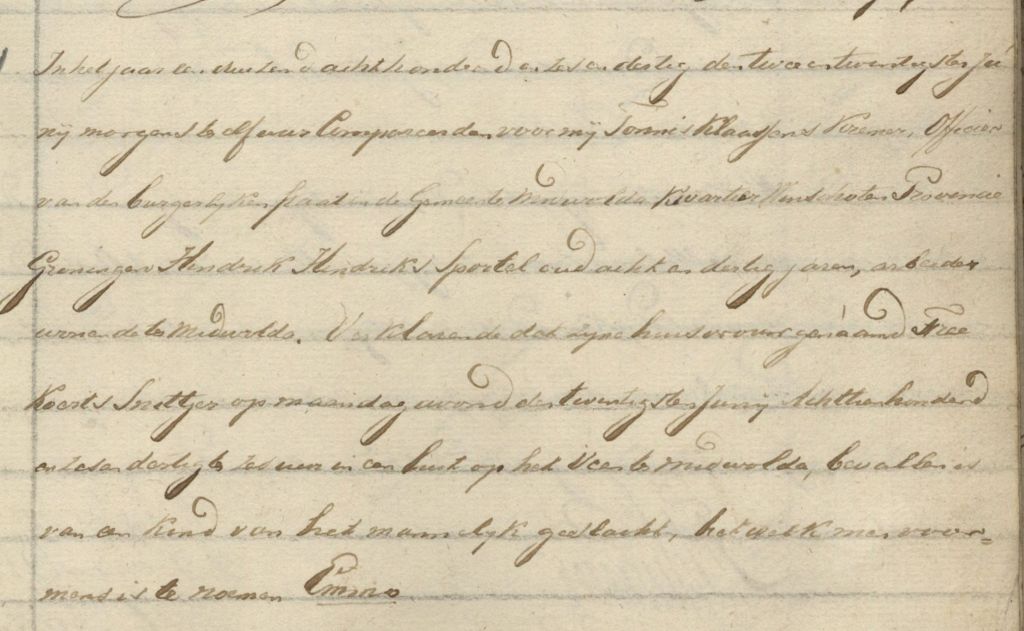 In het jaar een duizend acht honderd en zes en dertig den twee en twentigsten Ju
nij morgens te elf uur Compareerden voor mij Tonnis Klaassens Kremer, Officier
van den burgerlyken staat in de Gemeente Midwolda Kwartier Winschoten Provincie
Groningen Hindrik Hindriks Sportel oud acht en dertig jaren, arbeider
wonende te Midwolda. Verklarende dat zyne huisvrouw genaamd Tree
Koerts Snitjer op maandag avond den twentigsten Junij Achttienhonderd
en zes en dertig te zes uur in een huis op het Veen te midwolda, bevallen is
van een kind van het mannelyk geslacht, het welk men voor-
mens is te noemen Emmo